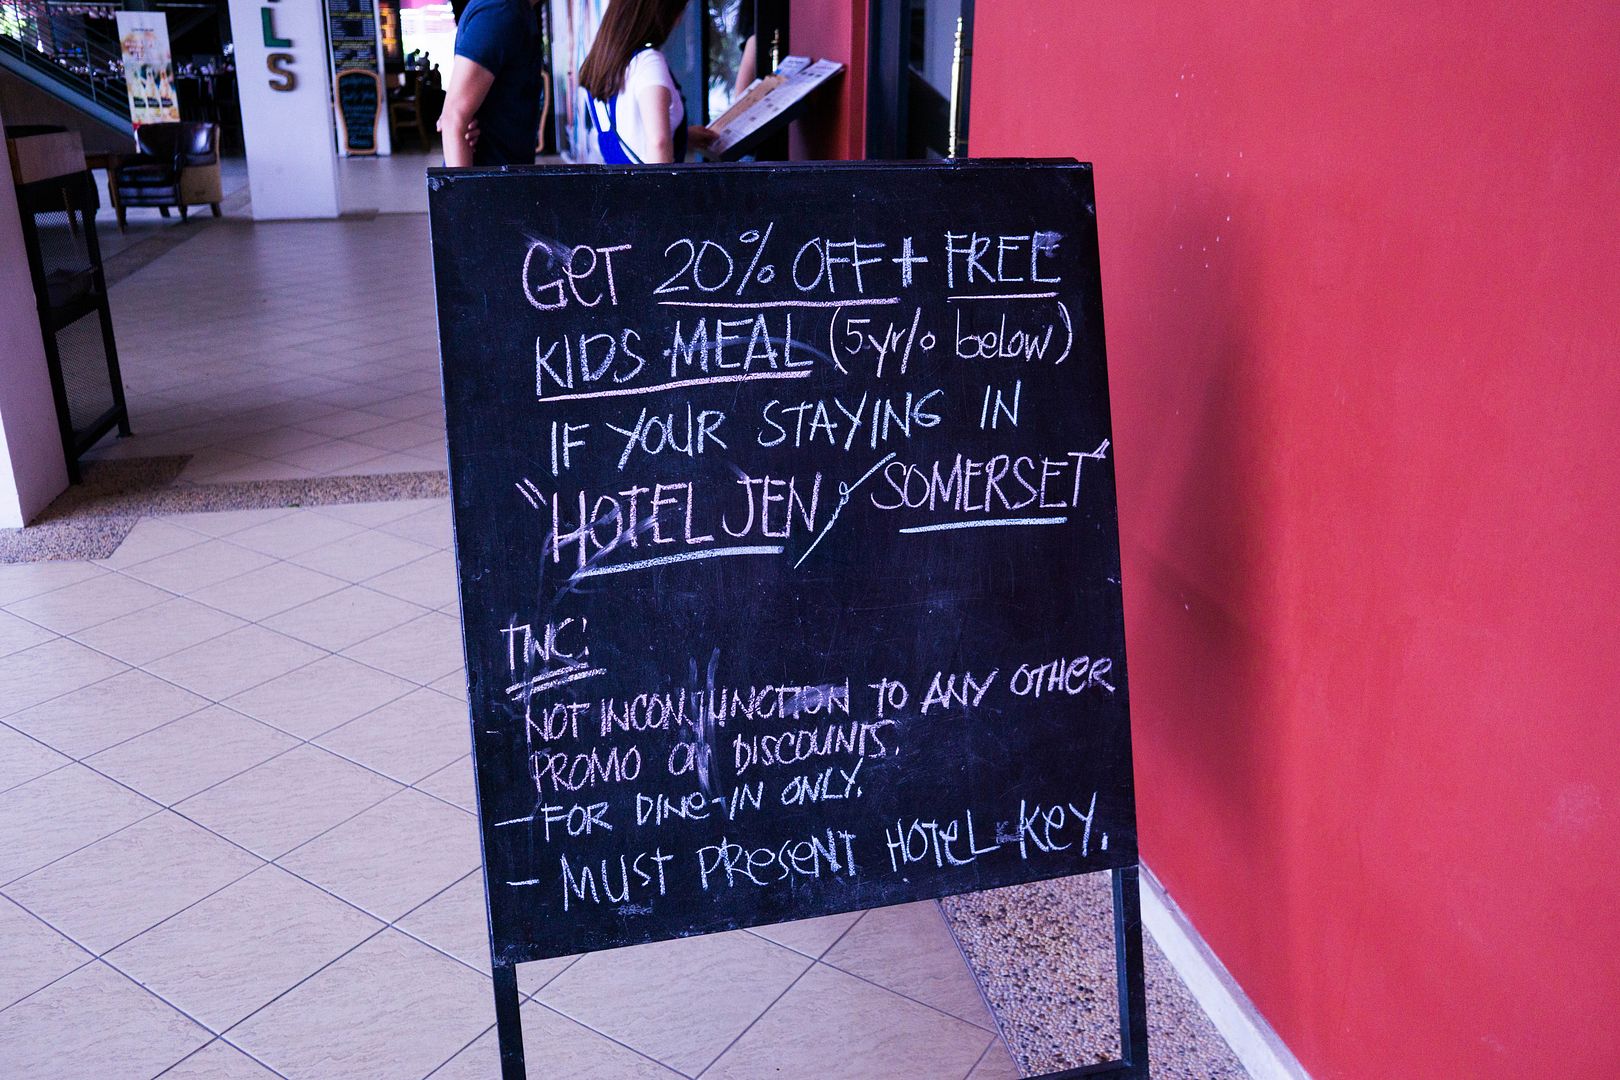 LS
GeT 20% OFF + FREE
KIDS MEAL (5yr/o below)
IF YOUR STAYING IN
"HOTEL JEN / SOMERSET"
TNC:
- NOT INCONJUNCTION TO ANY OTHeR
PROMO OR DISCOUNTS.
- FOR DINe-IN ONLY.
- MUST PReSeNT HOTeL KeY.